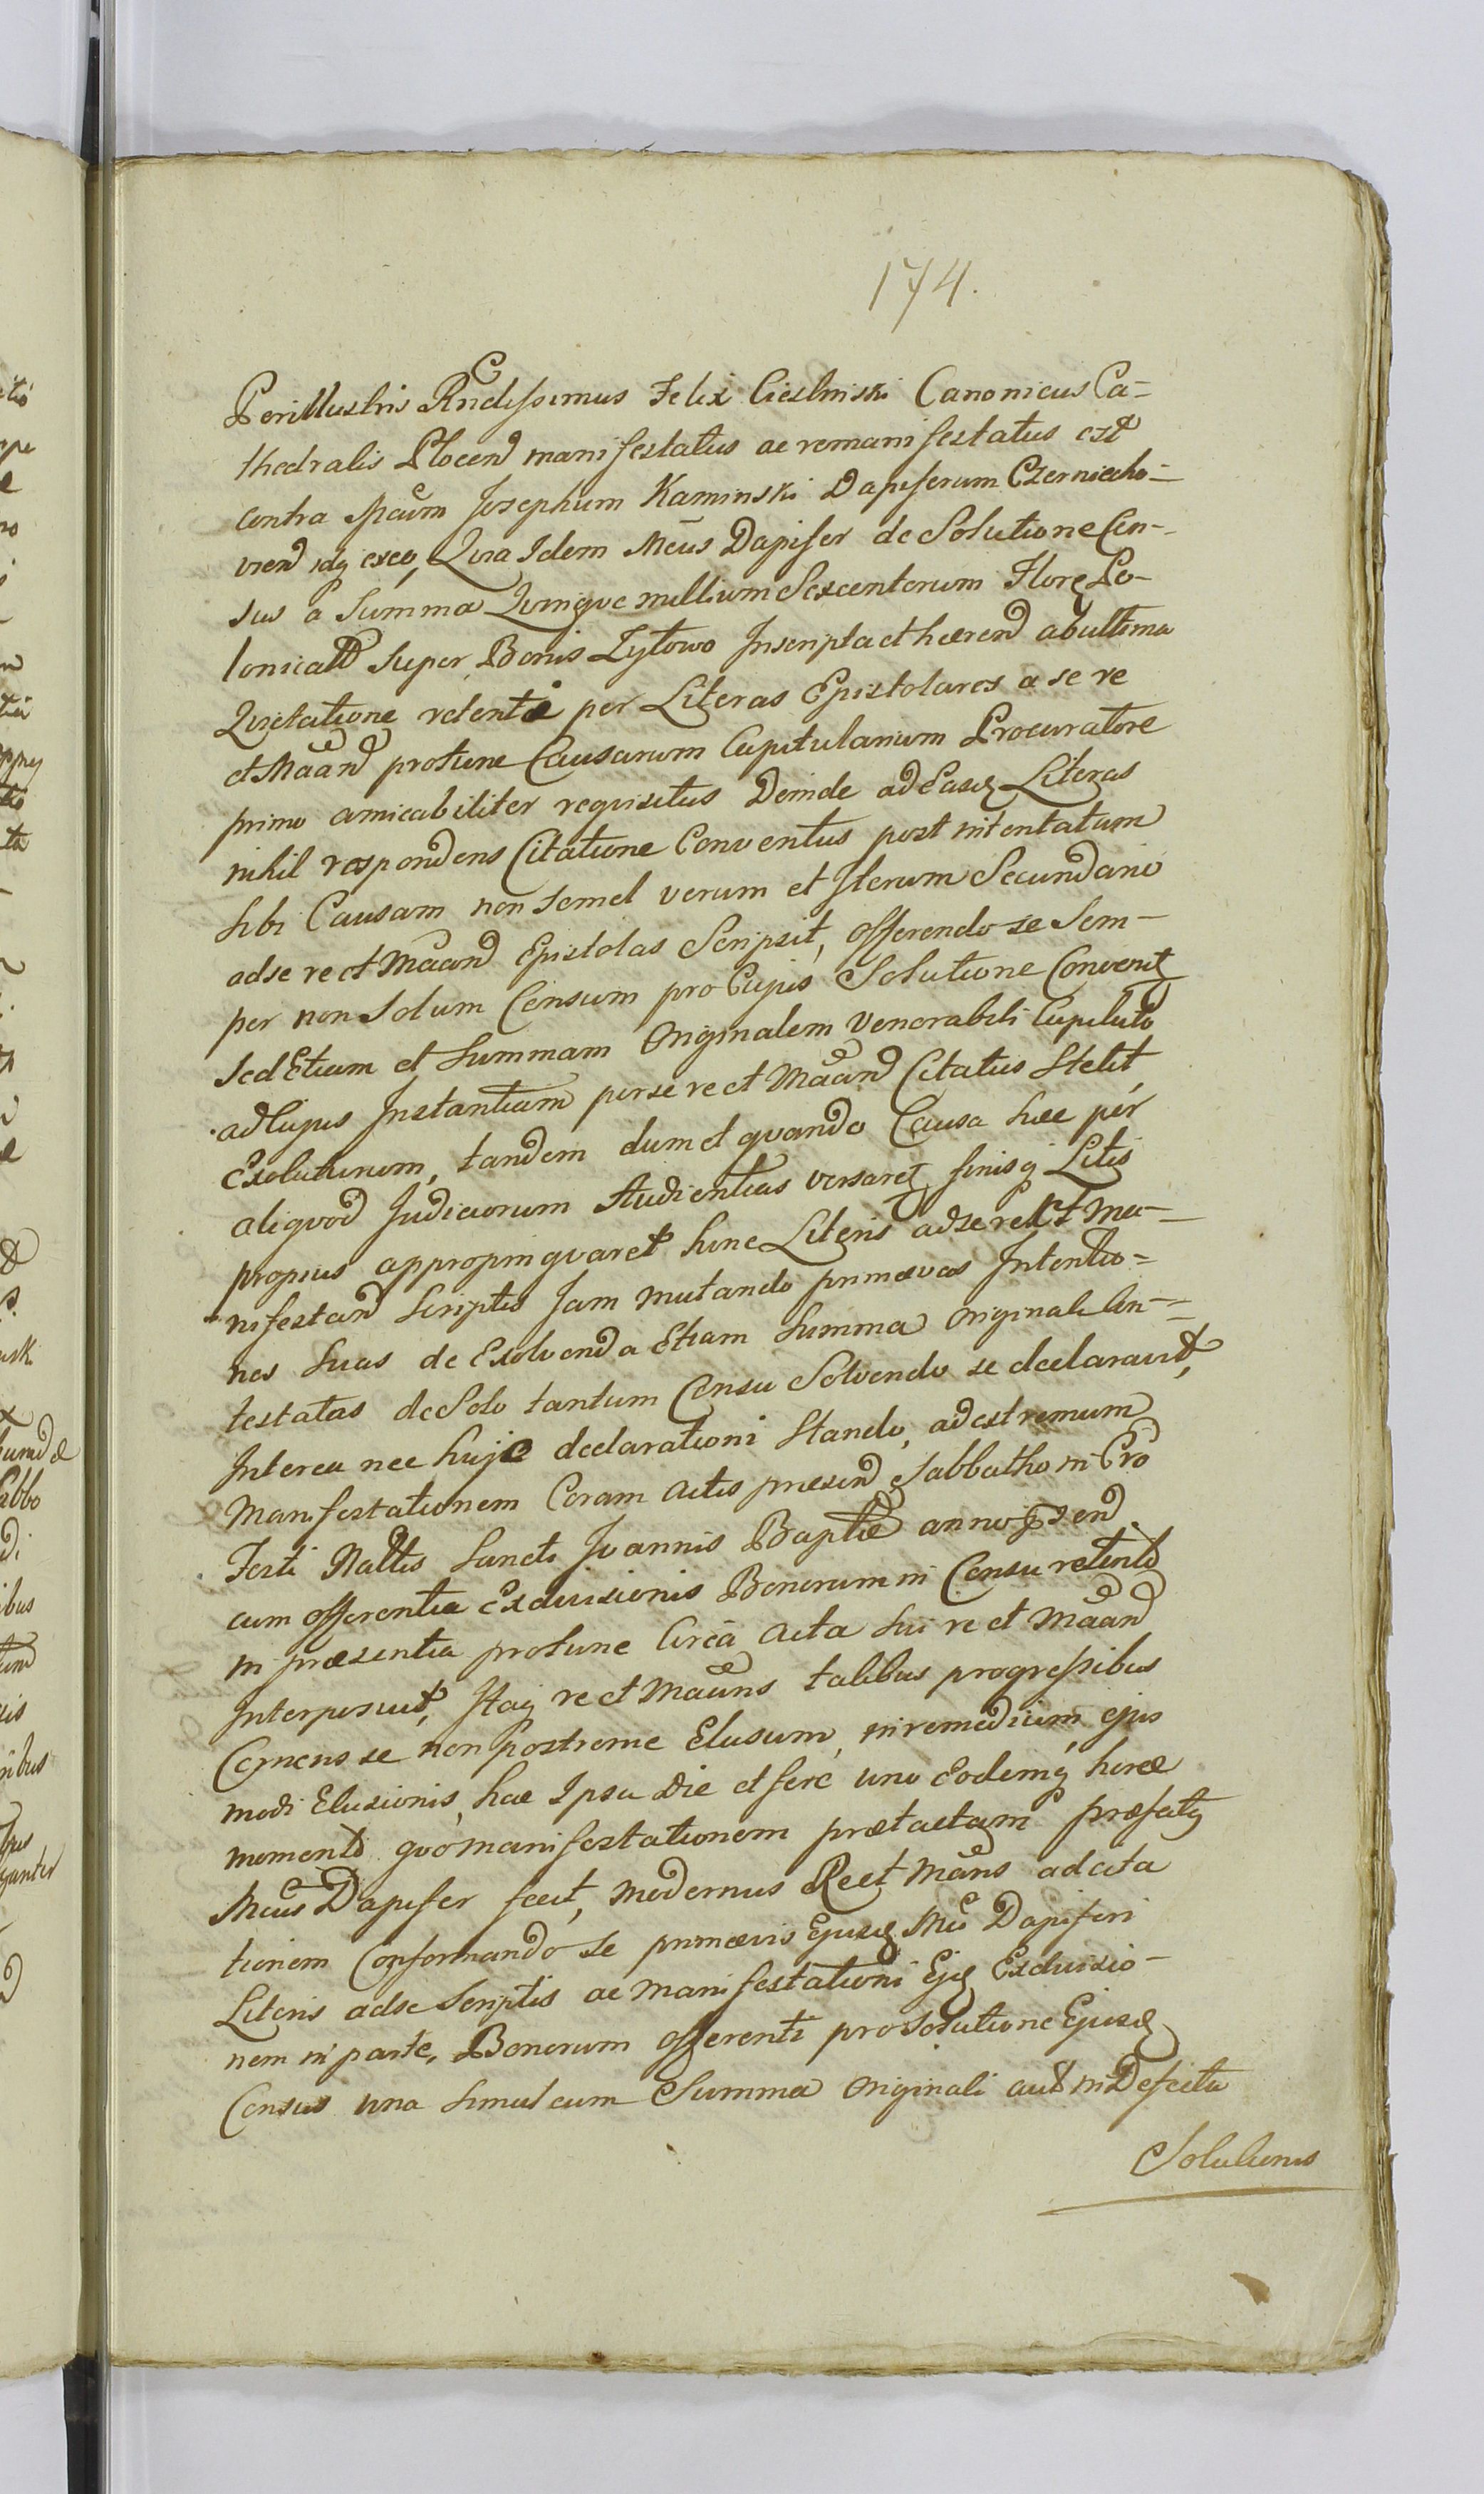 174.
Perillustris Rndissimus Felix Cieslinski Canonicus Ca-
thedralis Plocen manifestatus ac remanifestatus est
contra Mcum Josephum Kaminski Dapiferum Czerniecho-
vien idq exeo, Quia Idem Mcus Dapifer de Solutione Cen-
sus a Summa Quinque millium Sexcentorum Flore Po-
lonicall Super Bonis Zytowo Inscripta et haeren ab ultima
Quietatione retenta per Literas Epistolares a se re
et Maan protunc Causarum Capitularium Procuratore
primo amicabiliter requisitus Deinde ad Easd Literas
nihil respondens Citatione Conventus post intentatam
sibi Causam non semel verum et Iterum Secundario
ad se re et Maan Epistolas Scripsit, offerendo se Sem-
per non Solum Censum pro Cujus Solutione Convent
sed Etiam et Summam Originalem Venerabili Capitulo
ad Cujus Instantiam per se re et Maan Citatus Stetit,
Exoluturum, tandem dum et quando Causa haec per
aliquod Judiciorum Audientias versaret finisq Litis
propius appropinquaret hinc Literis ad se re et Ma-
nifestan Scriptis Jam mutando primaevas Intentio-
nes Suas de Exolvenda Etiam Summa Originali Con-
testatas de Solo tantum Censu Solvendo se declaravit,
Interea nec hujc declarationi Stando, ad extremum
Manifestationem Coram Actis praesen Sabbatho in Cro
Festi Nattis Sancti Joannis Baptae anno psen
cum offerentia Exdivisionis Bonorum in Censu retento
in praesentia protunc Circa Acta sui re et Maan
Interposuit, Itaq re et Maans talibus progressibus
Cernens se non postreme Elusum, in remedium ejus
modi Elusionis, hac Ipsa Die et fere uno Eodemq horae
momento quo manifestationem praetactam praefatus
Mcus Dapifer fecit, modernus Re et Mans ad cita
tionem Conformando se primaevis Ejusd Mci Dapiferi
Literis ad se Scriptis ac Manifestationi Ejq Exdivisio-
nem in parte, Bonorum offerenti pro Solutione Ejusd
Census una Simul cum Summa Originali aut in Defectu
Solutionis